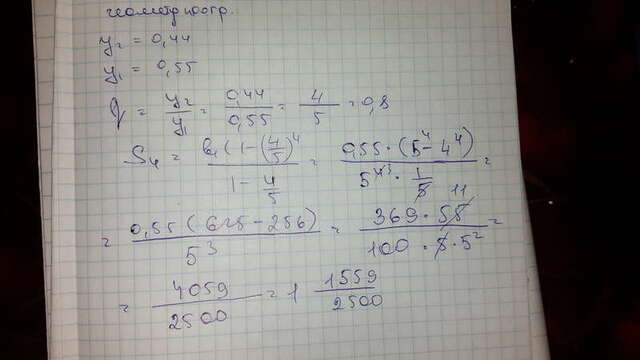 геометр прогр.
y₂ = 0,44
y₁ = 0,55
q = y₂/y₁ = 0,44/0,55 = 4/5 = 0,8
S₄ = b₁(1-(4/5)⁴/(1-4/5) = 0,55·(5⁴-4⁴)/(5⁴³·1/5) =
= 0,55(625-256)/5³ = 369·55 11/(100·5·5²) =
= 4059/2500 = 1 1559/2500